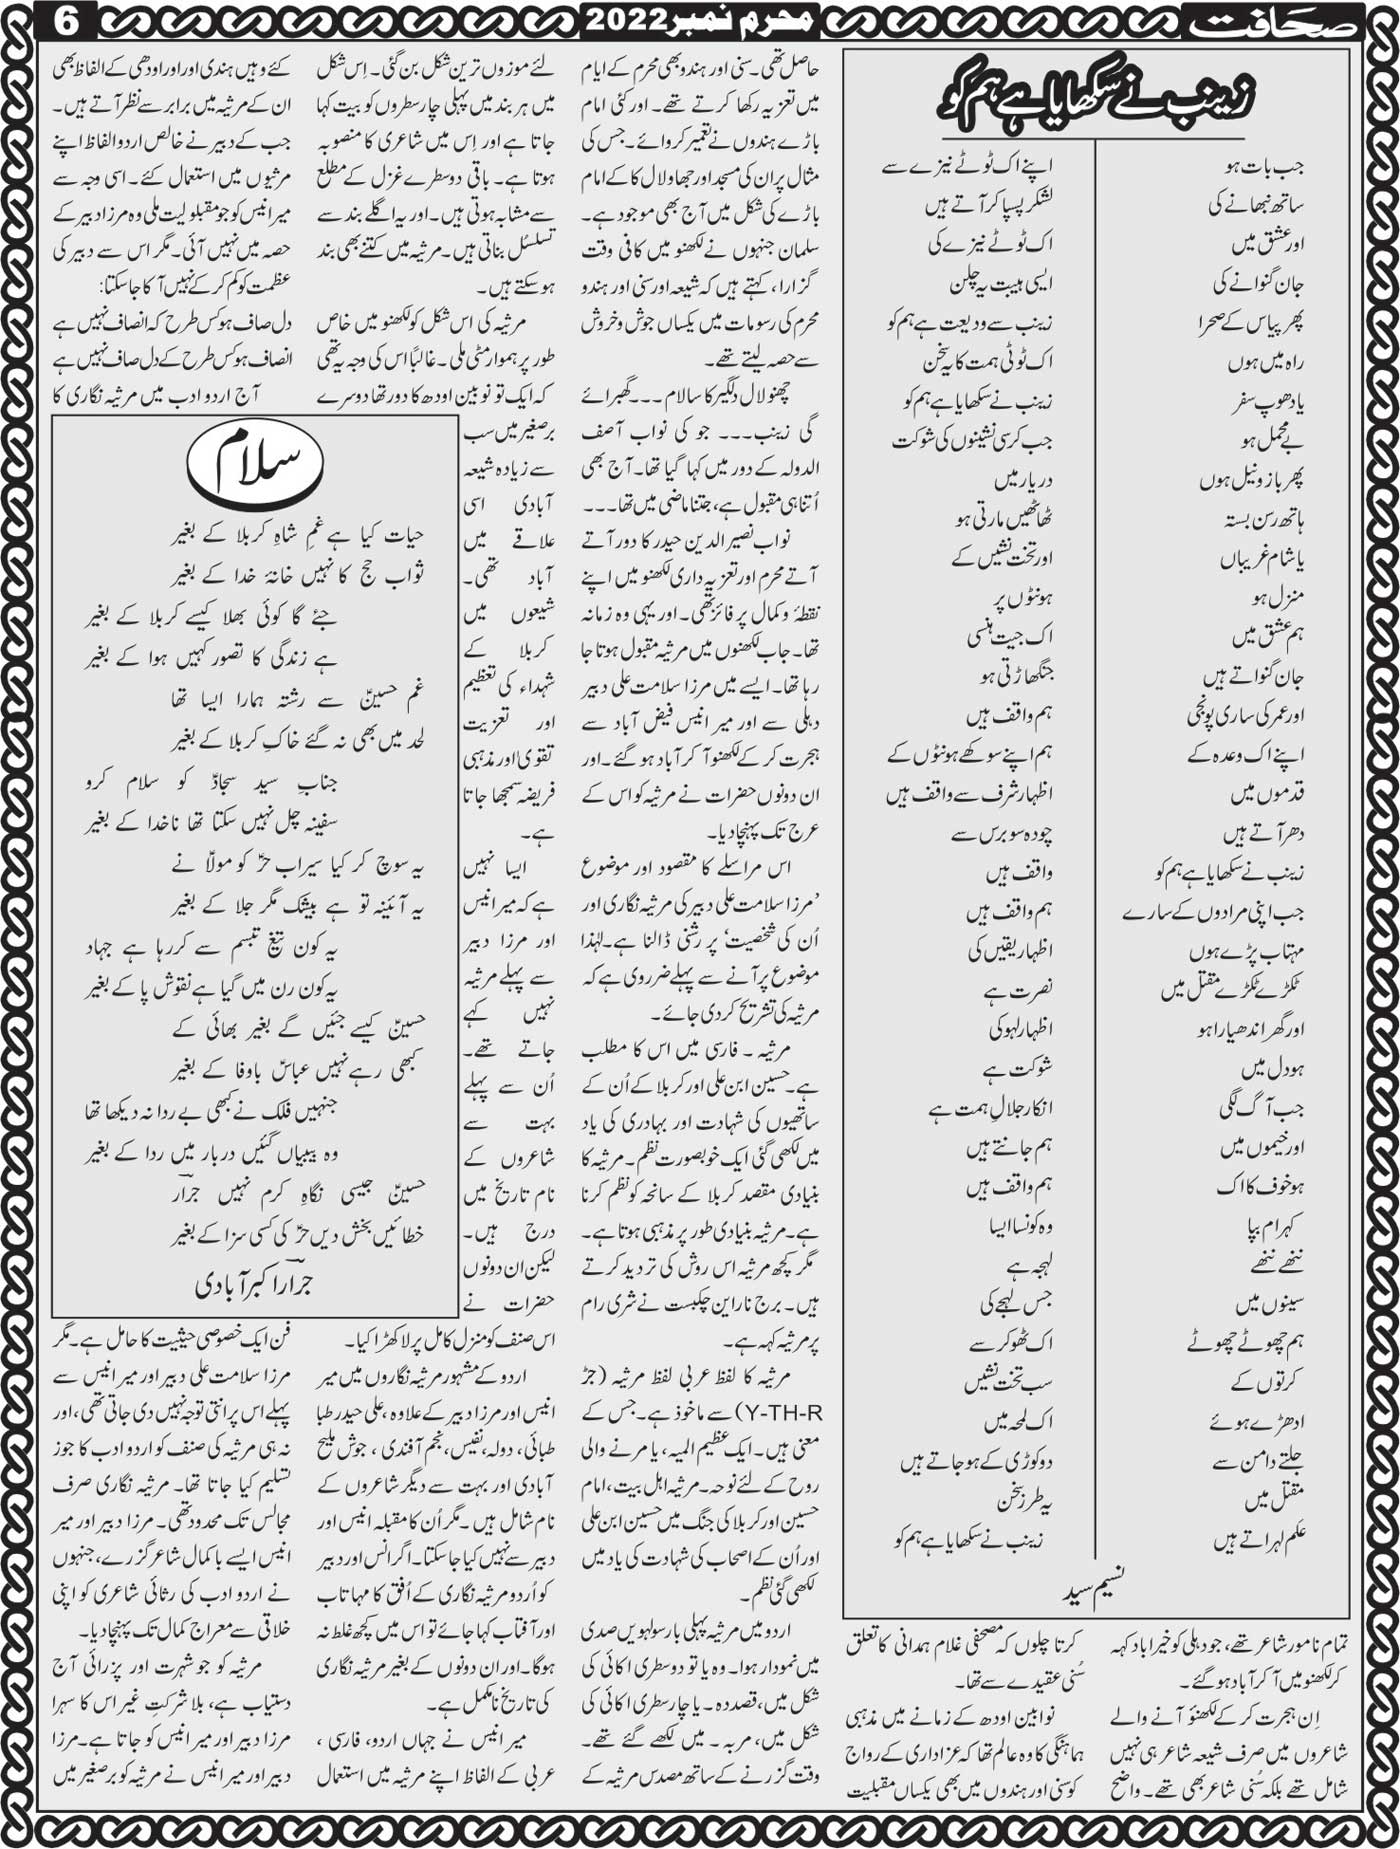 صحافت
محرم نمبر 2022
6
زینب نے سکھایا ہے ہم کو
جب بات ہو
ساتھ نبھانے کی
اور عشق میں
جان گنوانے کی
پھر پیاس کے صحرا
راہ میں ہوں
یا دھوپ سفر
بے محمل ہو
پھر بازو نیل ہوں
ہاتھ رسن بستہ
یا شام غریباں
منزل ہو
ہم عشق میں
جان گنواتے ہیں
اور عمر کی ساری پونجی
اپنے اک وعدہ کے
قدموں میں
دھر آتے ہیں
زینب نے سکھایا ہے ہم کو
جب اپنی مرادوں کے سارے
مہتاب پڑے ہوں
ٹکڑے ٹکڑے مقتل میں
اور گھر اندھیارا ہو
ہو دل میں
جب آگ لگی
اور خیموں میں
ہو خوف کا اک
کہرام بپا
ننھے ننھے
سینوں میں
ہم چھوٹے چھوٹے
کرتوں کے
ادھڑے ہوئے
جلتے دامن سے
مقتل میں
علم لہراتے ہیں
اپنے اک ٹوٹے نیزے سے
لشکر پسپا کر آتے ہیں
اک ٹوٹے نیزے کی
ایسی ہیبت یہ چلن
زینب سے ودیعت ہے ہم کو
اک ٹوٹی ہمت کا یہ سخن
زینب نے سکھایا ہے ہم کو
جب کرسی نشینوں کی شوکت
دربار میں
ٹھاٹھیں مارتی ہو
اور تخت نشیں کے
ہونٹوں پر
اک جیت ہنسی
جنگھاڑتی ہو
ہم واقف ہیں
ہم اپنے سوکھے ہونٹوں کے
اظہار شرف سے واقف ہیں
چودہ سو برس سے
واقف ہیں
ہم واقف ہیں
اظہار یقیں کی
نصرت ہے
اظہار لہو کی
شوکت ہے
انکار جلالِ ہمت ہے
ہم جانتے ہیں
ہم واقف ہیں
وہ کونسا ایسا
لہجہ ہے
جس لہجے کی
اک ٹھوکر سے
سب تخت نشیں
اک لمحہ میں
دو کوڑی کے ہو جاتے ہیں
یہ طرز سخن
زینب نے سکھایا ہے ہم کو
نسیم سید
تمام نامور شاعر تھے، جو دہلی کو خیرا باد کہہ
کر لکھنو میں آ کر آباد ہو گئے۔
اِن ہجرت کر کے لکھنؤ آنے والے
شاعروں میں صرف شیعہ شاعر ہی نہیں
شامل تھے بلکہ سُنی شاعر بھی تھے۔ واضح
کرتا چلوں کہ مصحفی غلام ہمدانی کا تعلق
سُنی عقیدے سے تھا۔
نوابین اودھ کے زمانے میں مذہبی
ہماہنگی کا وہ عالم تھا کہ عزاداری کے رواج
کو سنی اور ہندوں میں بھی یکساں مقبلیت
حاصل تھی۔ سنی اور ہندو بھی محرم کے ایام
میں تعزیہ رکھا کرتے تھے۔ اور کئی امام
باڑے ہندوں نے تعمیر کروائے۔ جس کی
مثال پران کی مسجد اور جھاولال کا کے امام
باڑے کی شکل میں آج بھی موجود ہے۔
سلمان جنہوں نے لکھنو میں کافی وقت
گزارا، کہتے ہیں کہ شیعہ اور سنی اور ہندو
محرم کی رسومات میں یکساں جوش وخروش
سے حصہ لیتے تھے۔
چھنو لال دلگیر کا سالام ۔۔۔ گھبرائے
گی زینب۔۔۔ جو کی نواب آصف
الدولہ کے دور میں کہا گیا تھا۔ آج بھی
اُتنا ہی مقبول ہے، جتنا ماضی میں تھا۔۔۔
نواب نصیر الدین حیدر کا دور آتے
آتے محرم اور تعزیہ داری لکھنو میں اپنے
نقطۂ وکمال پر فائز تھی۔ اور یہی وہ زمانہ
تھا۔ جاب لکھنوں میں مرثیہ مقبول ہوتا جا
رہا تھا۔ ایسے میں مرزا سلامت علی دبیر
دہلی سے اور میر انیس فیض آباد سے
ہجرت کر کے لکھنو آ کر آباد ہو گئے۔ اور
ان دونوں حضرات نے مرثیہ کو اس کے
عرج تک پہنچا دیا۔
اس مراسلے کا مقصود اور موضوع
’مرزا سلامت علی دبیر کی مرثیہ نگاری اور
اُن کی شخصیت‘ پر رشنی ڈالنا ہے۔ لہٰذا
موضوع پر آنے سے پہلے ضرری ہے کہ
مرثیہ کی تشریح کر دی جائے۔
مرثیہ ۔ فارسی میں اس کا مطلب
ہے۔ حسین ابن علی اور کربلا کے اُن کے
ساتھیوں کی شہادت اور بہادری کی یاد
میں لکھی گئی ایک خوبصورت نظم۔ مرثیہ کا
بنیادی مقصد کربلا کے سانحہ کو نظم کرنا
ہے۔ مرثیہ بنیادی طور پر مذہبی ہوتا ہے۔
مگر کچھ مرثیہ اس روش کی تردید کرتے
ہیں۔ برج ناراین چکبست نے شری رام
پر مرثیہ کہہ ہے۔
مرثیہ کا لفظ عربی لفظ مرثیہ (جڑ
Y-TH-R) سے ماخوذ ہے۔ جس کے
معنی ہیں۔ ایک عظیم المیہ، یا مرنے والی
روح کے لئے نوحہ۔ مرثیہ اہل بیت، امام
حسین اور کربلا کی جنگ میں حسین ابن علی
اور اُن کے اصحاب کی شہادت کی یاد میں
لکھی گئی نظم۔
اردو میں مرثیہ پہلی بار سولہویں صدی
میں نمودار ہوا۔ وہ یا تو دو سطری اکائی کی
شکل میں، قصددہ۔ یا چار سطری اکائی کی
شکل میں، مربہ ۔ میں لکھے گئے تھے۔
وقت گزرنے کے ساتھ مصدس مرثیہ کے
لئے موزوں ترین شکل بن گئی۔ اِس شکل
میں ہر بند میں پہلی چار سطروں کو بیت کہا
جاتا ہے اور اِس میں شاعری کا منصوبہ
ہوتا ہے۔ باقی دو سطرے غزل کے مطلع
سے مشابہ ہوتی ہیں۔ اور یہ اگلے بند سے
تسلسُل بناتی ہیں۔ مرثیہ میں کتنے بھی بند
ہو سکتے ہیں۔
مرثیہ کی اس شکل کو لکھنو میں خاص
طور پر ہموار مٹی ملی۔ غالباً اس کی وجہ یہ تھی
کہ ایک تو نوبین اودھ کا دور تھا دوسرے
برصغیر میں سب
سے زیادہ شیعہ
آبادی اسی
علاقے میں
آباد تھی۔
شیعوں میں
کربلا کے
شہداء کی تعظیم
اور تعزیت
تقوی اور مذہبی
فریضہ سمجھا جاتا
ہے۔
ایسا نہیں
ہے کہ میر انیس
اور مرزا دبیر
سے پہلے مرثیہ
نہیں کہے
جاتے تھے۔
اُن سے پہلے
بہت سے
شاعروں کے
نام تاریخ میں
درج ہیں۔
لیکن ان دونوں
حضرات نے
اس صنف کو منزل کامل پر لا کھڑا کیا۔
اردو کے مشہور مرثیہ نگاروں میں میر
انیس اور مرزا دبیر کے علاوہ، علی حیدر طبا
طبائی، دولہ، نفیس، نجم آفندی، جوش ملیح
آبادی اور بہت سے دیگر شاعروں کے
نام شامل ہیں۔ مگر اُن کا مقبلہ انیس اور
دبیر سے نہیں کیا جا سکتا۔ اگر انس اور دبیر
کو اُردو مرثیہ نگاری کے اُفق کا مہاتاب
اور آفتاب کہا جائے تو اس میں کچھ غلط نہ
ہوگا۔ اور ان دونوں کے بغیر مرثیہ نگاری
کی تاریخ نامکمل ہے۔
میر انیس نے جہاں اردو، فارسی،
عربی کے الفاظ اپنے مرثیہ میں استعمال
کئے وہیں ہندی اور اور اودھی کے الفاظ بھی
ان کے مرثیہ میں برابر سے نظر آتے ہیں۔
جب کے دبیر نے خالص اردو الفاظ اپنے
مرثیوں میں استعمال کئے۔ اسی وجہ سے
میر انیس کو جو مقبولیت ملی وہ مرزا دبیر کے
حصہ میں نہیں آئی۔ مگر اس سے دبیر کی
عظمت کو کم کر کے نہیں آکا جا سکتا:
دل صاف ہو کس طرح کہ انصاف نہیں ہے
انصاف ہو کس طرح کے دل صاف نہیں ہے
آج اردو ادب میں مرثیہ نگاری کا
سلام
حیات کیا ہے غمِ شاہِ کربلا کے بغیر
ثواب حج کا نہیں خانۂ خدا کے بغیر
جئے گا کوئی بھلا کیسے کربلا کے بغیر
ہے زندگی کا تصور کہیں ہوا کے بغیر
غم حسینؑ سے رشتہ ہمارا ایسا تھا
لحد میں بھی نہ گئے خاکِ کربلا کے بغیر
جناب سید سجادؑ کو سلام کرو
سفینہ چل نہیں سکتا تھا ناخدا کے بغیر
یہ سوچ کر کیا سیراب حرؑ کو مولاؑ نے
یہ آئینہ تو ہے بیشک مگر جلا کے بغیر
یہ کون تیغ تبسم سے کر رہا ہے جہاد
یہ کون رن میں گیا ہے نقوش پا کے بغیر
حسینؑ کیسے جئیں گے بغیر بھائی کے
کبھی رہے نہیں عباسؑ باوفا کے بغیر
جنہیں فلک نے کبھی بے ردا نہ دیکھا تھا
وہ بیبیاں گئیں دربار میں ردا کے بغیر
حسینؑ جیسی نگاہِ کرم نہیں جرار
خطائیں بخش دیں حرؑ کی کسی سزا کے بغیر
جرار اکبرآبادی
فن ایک خصوصی حیثیت کا حامل ہے۔ مگر
مرزا سلامت علی دبیر اور میر انیس سے
پہلے اس پر اتنی توجہ نہیں دی جاتی تھی، اور
نہ ہی مرثیہ کی صنف کو اردو ادب کا جوز
تسلیم کیا جاتا تھا۔ مرثیہ نگاری صرف
مجالس تک محدود تھی۔ مرزا دبیر اور میر
انیس ایسے باکمال شاعر گزرے، جنہوں
نے اردو ادب کی رثائی شاعری کو اپنی
خلاقی سے معراج کمال تک پہنچا دیا۔
مرثیہ کو جو شہرت اور پزرائی آج
دستیاب ہے، بلا شرکتِ غیر اس کا سہرا
مرزا دبیر اور میر انیس کو جاتا ہے۔ مرزا
دبیر اور میر انیس نے مرثیہ کو برصغیر میں